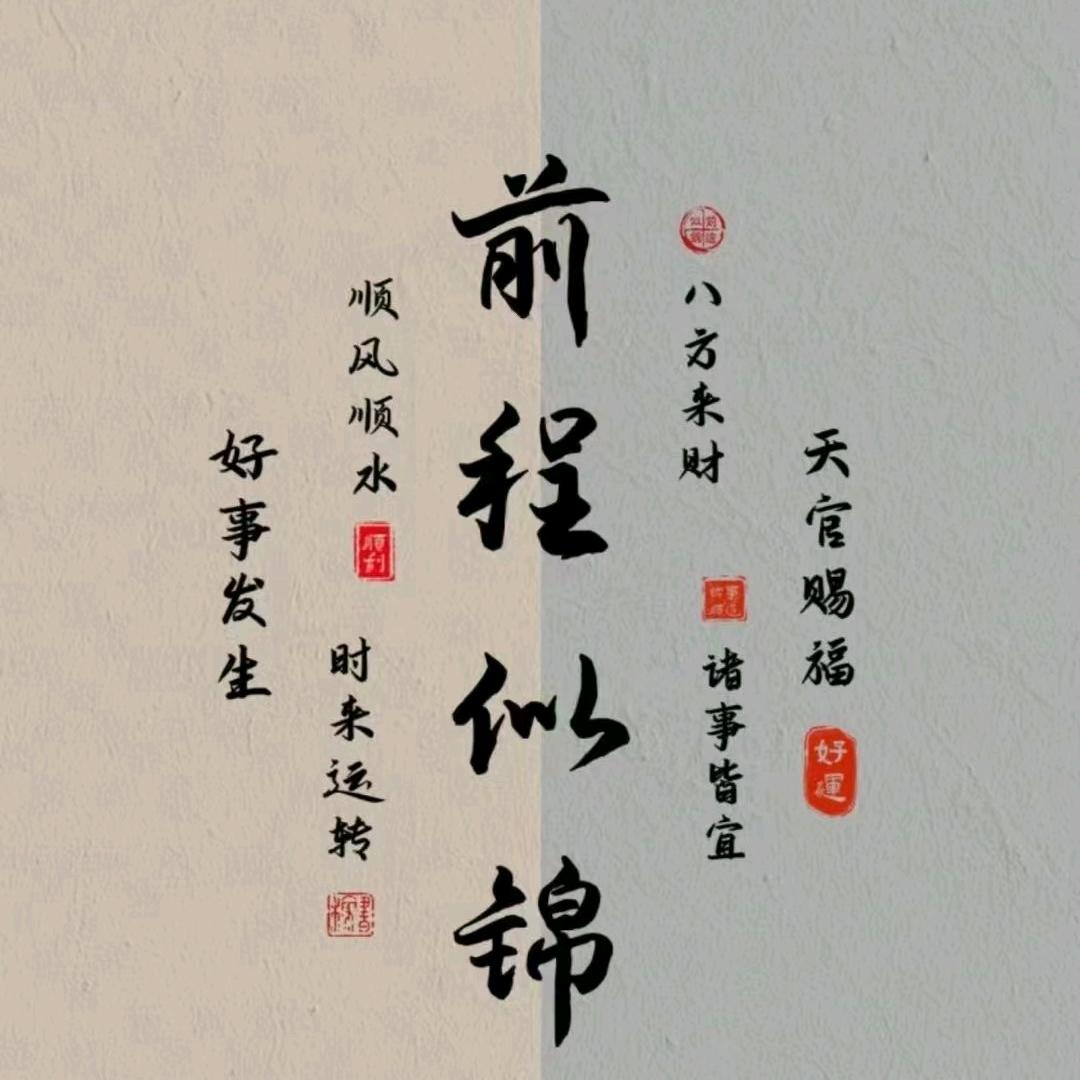 天官赐福
好運
八方来财
诸事皆宜
前程似锦
顺风顺水
順利
时来运转
好事发生